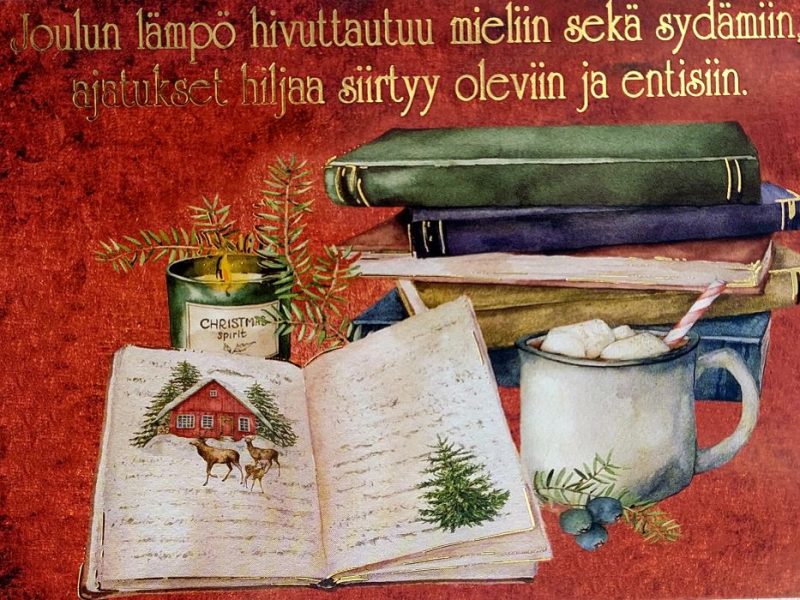 Joulun lämpö hivuttautuu mieliin sekä sydämiin,
ajatukset hiljaa siirtyy oleviin ja entisiin.
CHRISTMAS
spirit